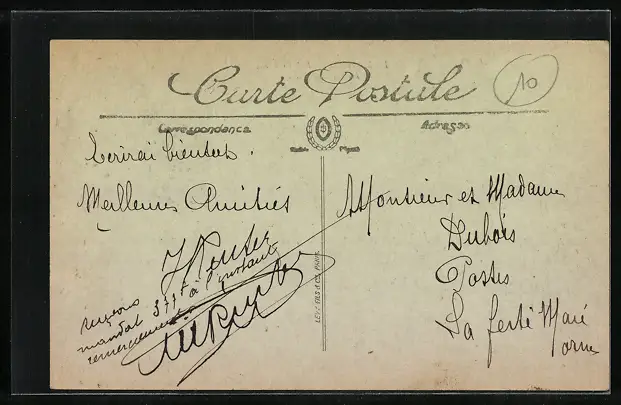 Carte Postale
10
Correspondance
Adresse
Ecrirai bientot.
Meilleures Amitiés
Monsieur et Madame
Dubois
Postes
La ferté Macé
Orne
reçois
mandat à l'instant
remerciements
LEVY FILS & Cie PARIS